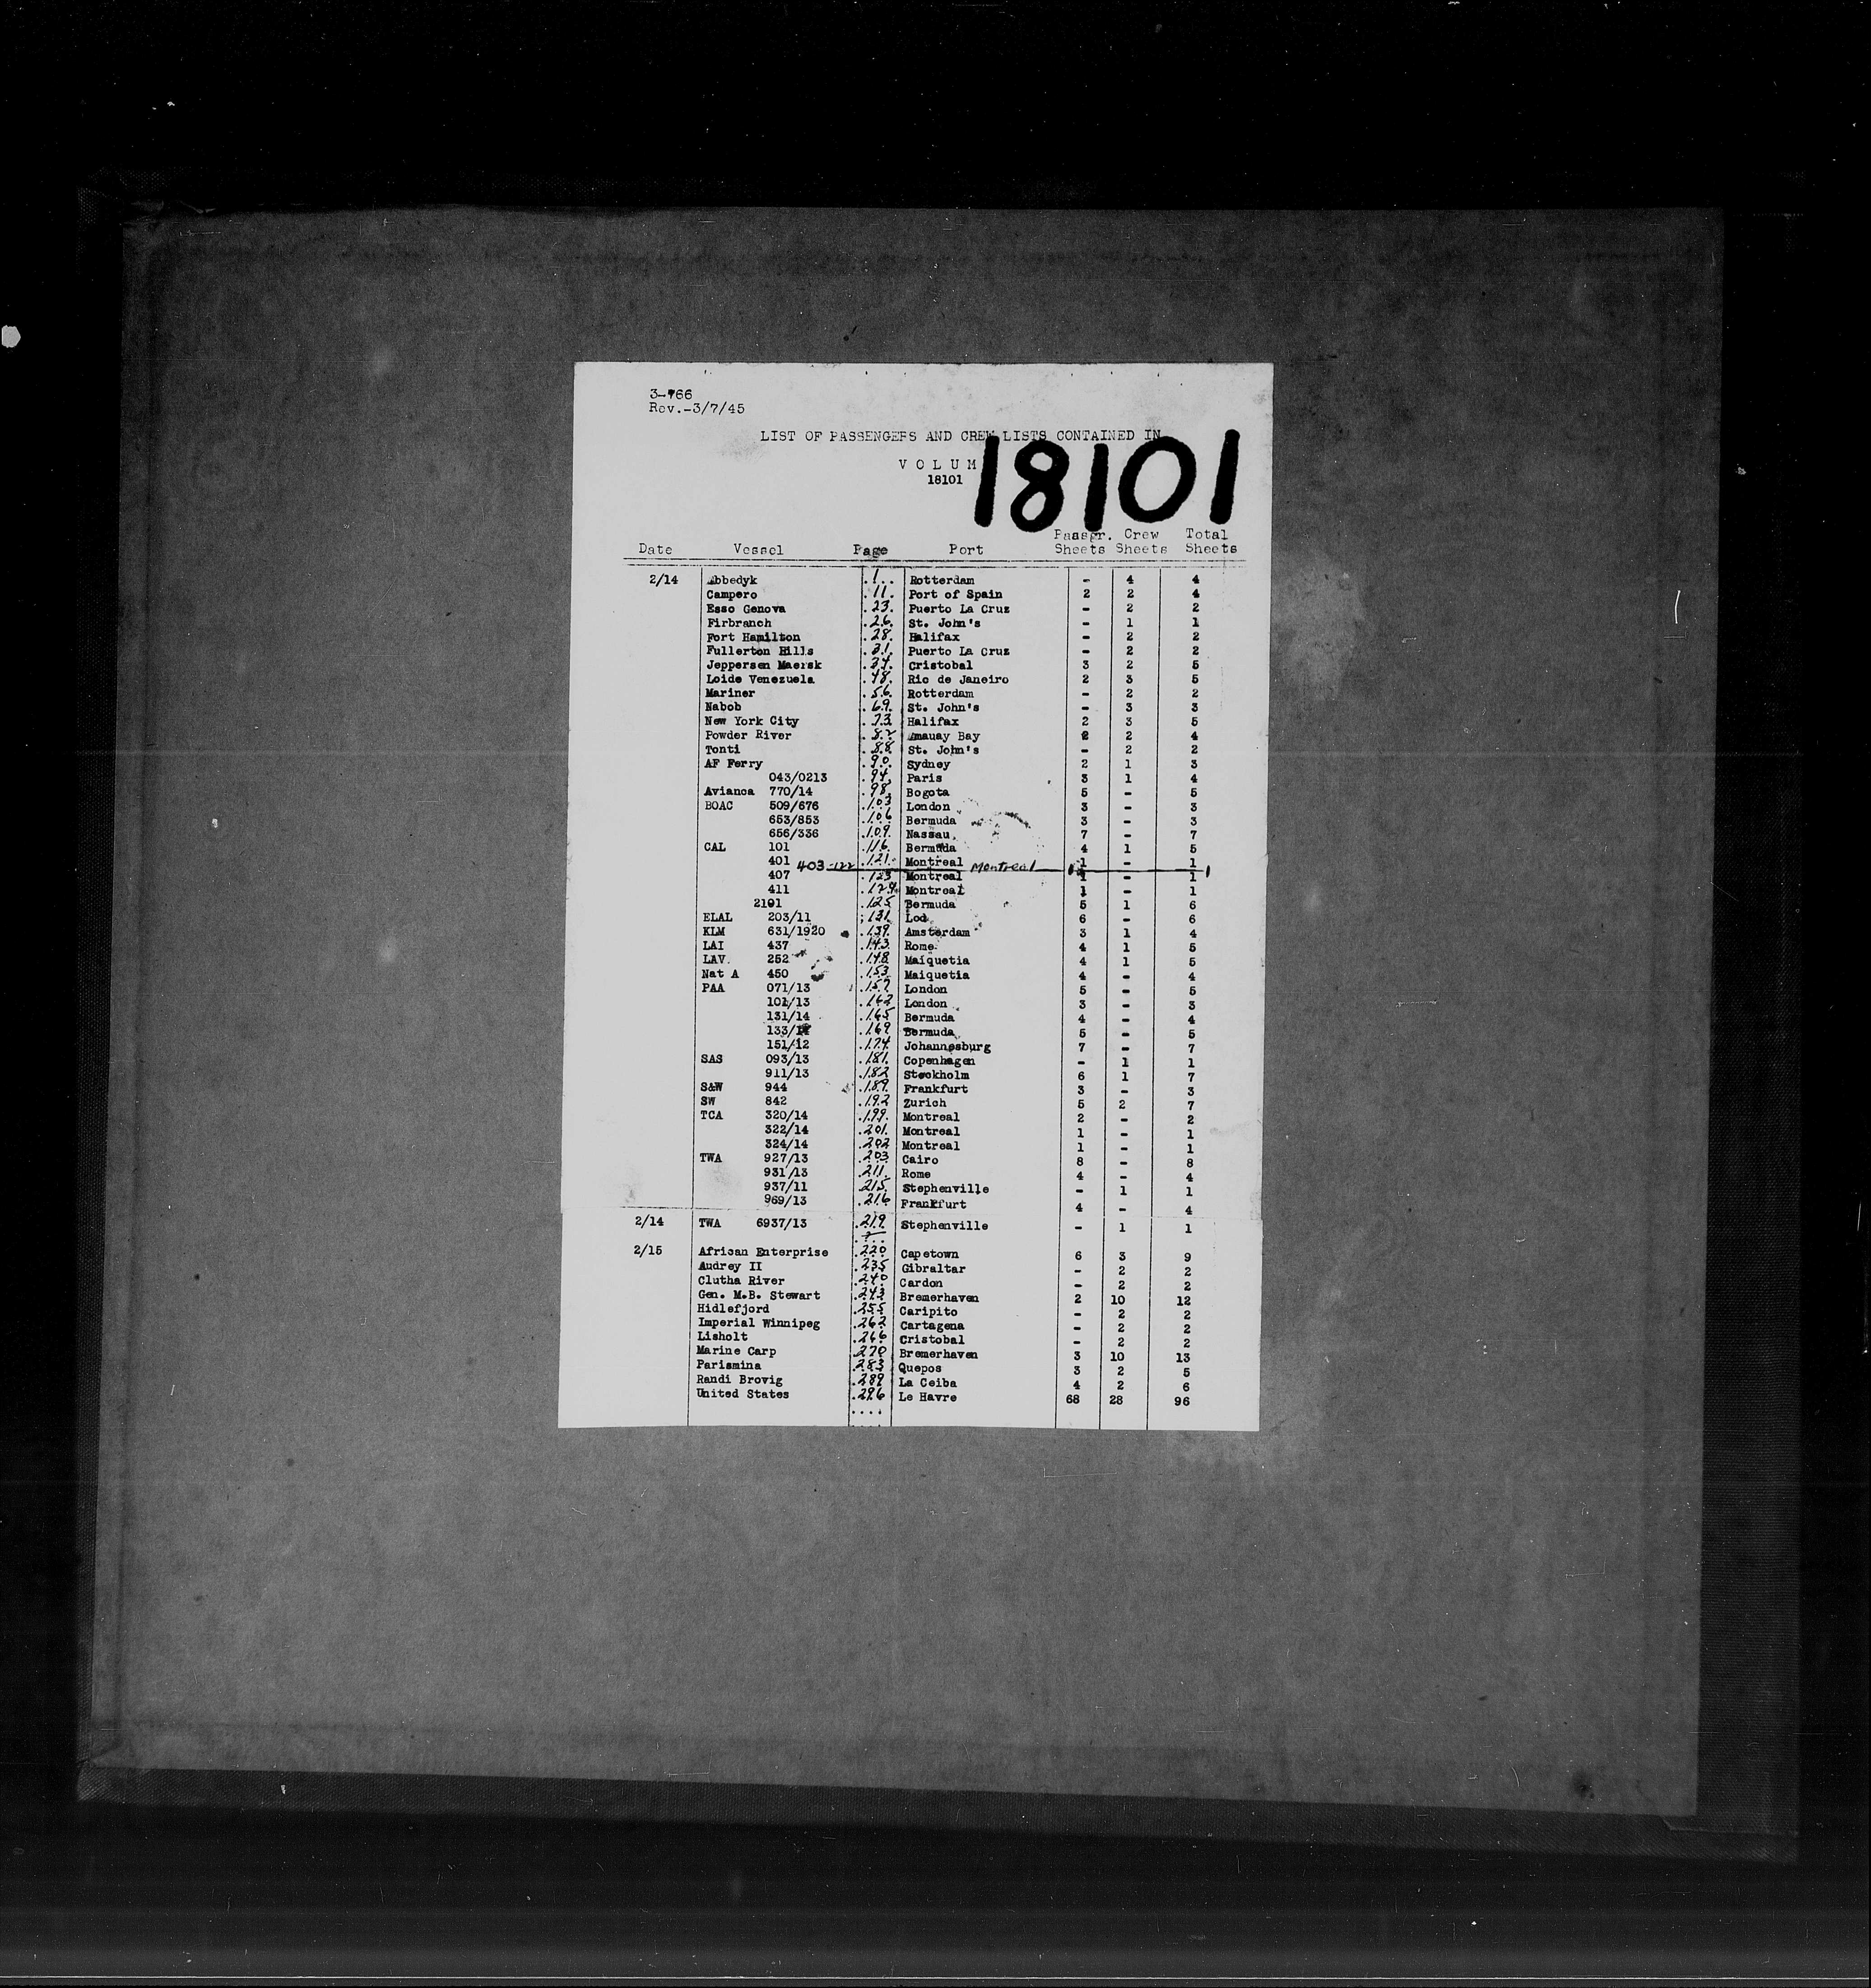 3-766
Rev.-3/7/45
LIST OF PASSENGERS AND CREW LISTS CONTAINED IN
VOLUM 18101
18101
Date Vessel Page Port Passgr. Sheets Crew Sheets Total Sheets
2/14 Abbedyk 1 Rotterdam - 4 4
Campero 11 Port of Spain 2 2 4
Esso Genova 23 Puerto La Cruz - 2 2
Firbranch 26 St. John's - 1 1
Fort Hamilton 28 Halifax - 2 2
Fullerton Hills 31 Puerto La Cruz - 2 2
Jeppersen Maersk 34 Cristobal 3 2 5
Loide Venezuela 48 Rio de Janeiro 2 3 5
Mariner 56 Rotterdam - 2 2
Nabob 69 St. John's - 3 3
New York City 73 Halifax 2 3 5
Powder River 82 Amauay Bay 2 2 4
Tonti 88 St. John's - 2 2
AF Ferry 90 Sydney 2 1 3
043/0213 94 Paris 3 1 4
Avianca 770/14 98 Bogota 5 - 5
BOAC 509/676 103 London 3 - 3
653/853 106 Bermuda 3 - 3
656/336 109 Nassau 7 - 7
CAL 101 116 Bermuda 4 1 5
401 121 Montreal 1 - 1
403 -122 Montreal 1 1
407 123 Montreal 1 - 1
411 124 Montreal 1 - 1
2101 125 Bermuda 5 1 6
ELAL 203/11 131 Lod 6 - 6
KLM 631/1920 139 Amsterdam 3 1 4
LAI 437 143 Rome 4 1 5
LAV. 252 148 Maiquetia 4 1 5
Nat A 450 153 Maiquetia 4 - 4
PAA 071/13 157 London 5 - 5
101/13 162 London 3 - 3
131/14 165 Bermuda 4 - 4
133/14 169 Bermuda 5 - 5
151/12 174 Johannesburg 7 - 7
SAS 093/13 181 Copenhagen - 1 1
911/13 182 Stockholm 6 1 7
S&W 944 189 Frankfurt 3 - 3
SW 842 192 Zurich 5 2 7
TCA 320/14 199 Montreal 2 - 2
322/14 201 Montreal 1 - 1
324/14 202 Montreal 1 - 1
TWA 927/13 203 Cairo 8 - 8
931/13 211 Rome 4 - 4
937/11 215 Stephenville - 1 1
969/13 216 Frankfurt 4 - 4
2/14 TWA 6937/13 219 Stephenville - 1 1
2/15 African Enterprise 220 Capetown 6 3 9
Audrey II 235 Gibraltar - 2 2
Clutha River 240 Cardon - 2 2
Gen. M.B. Stewart 243 Bremerhaven 2 10 12
Hidlefjord 255 Caripito - 2 2
Imperial Winnipeg 262 Cartagena - 2 2
Lisholt 266 Cristobal - 2 2
Marine Carp 270 Bremerhaven 3 10 13
Parismina 283 Quepos 3 2 5
Randi Brovig 289 La Ceiba 4 2 6
United States 296 Le Havre 68 28 96